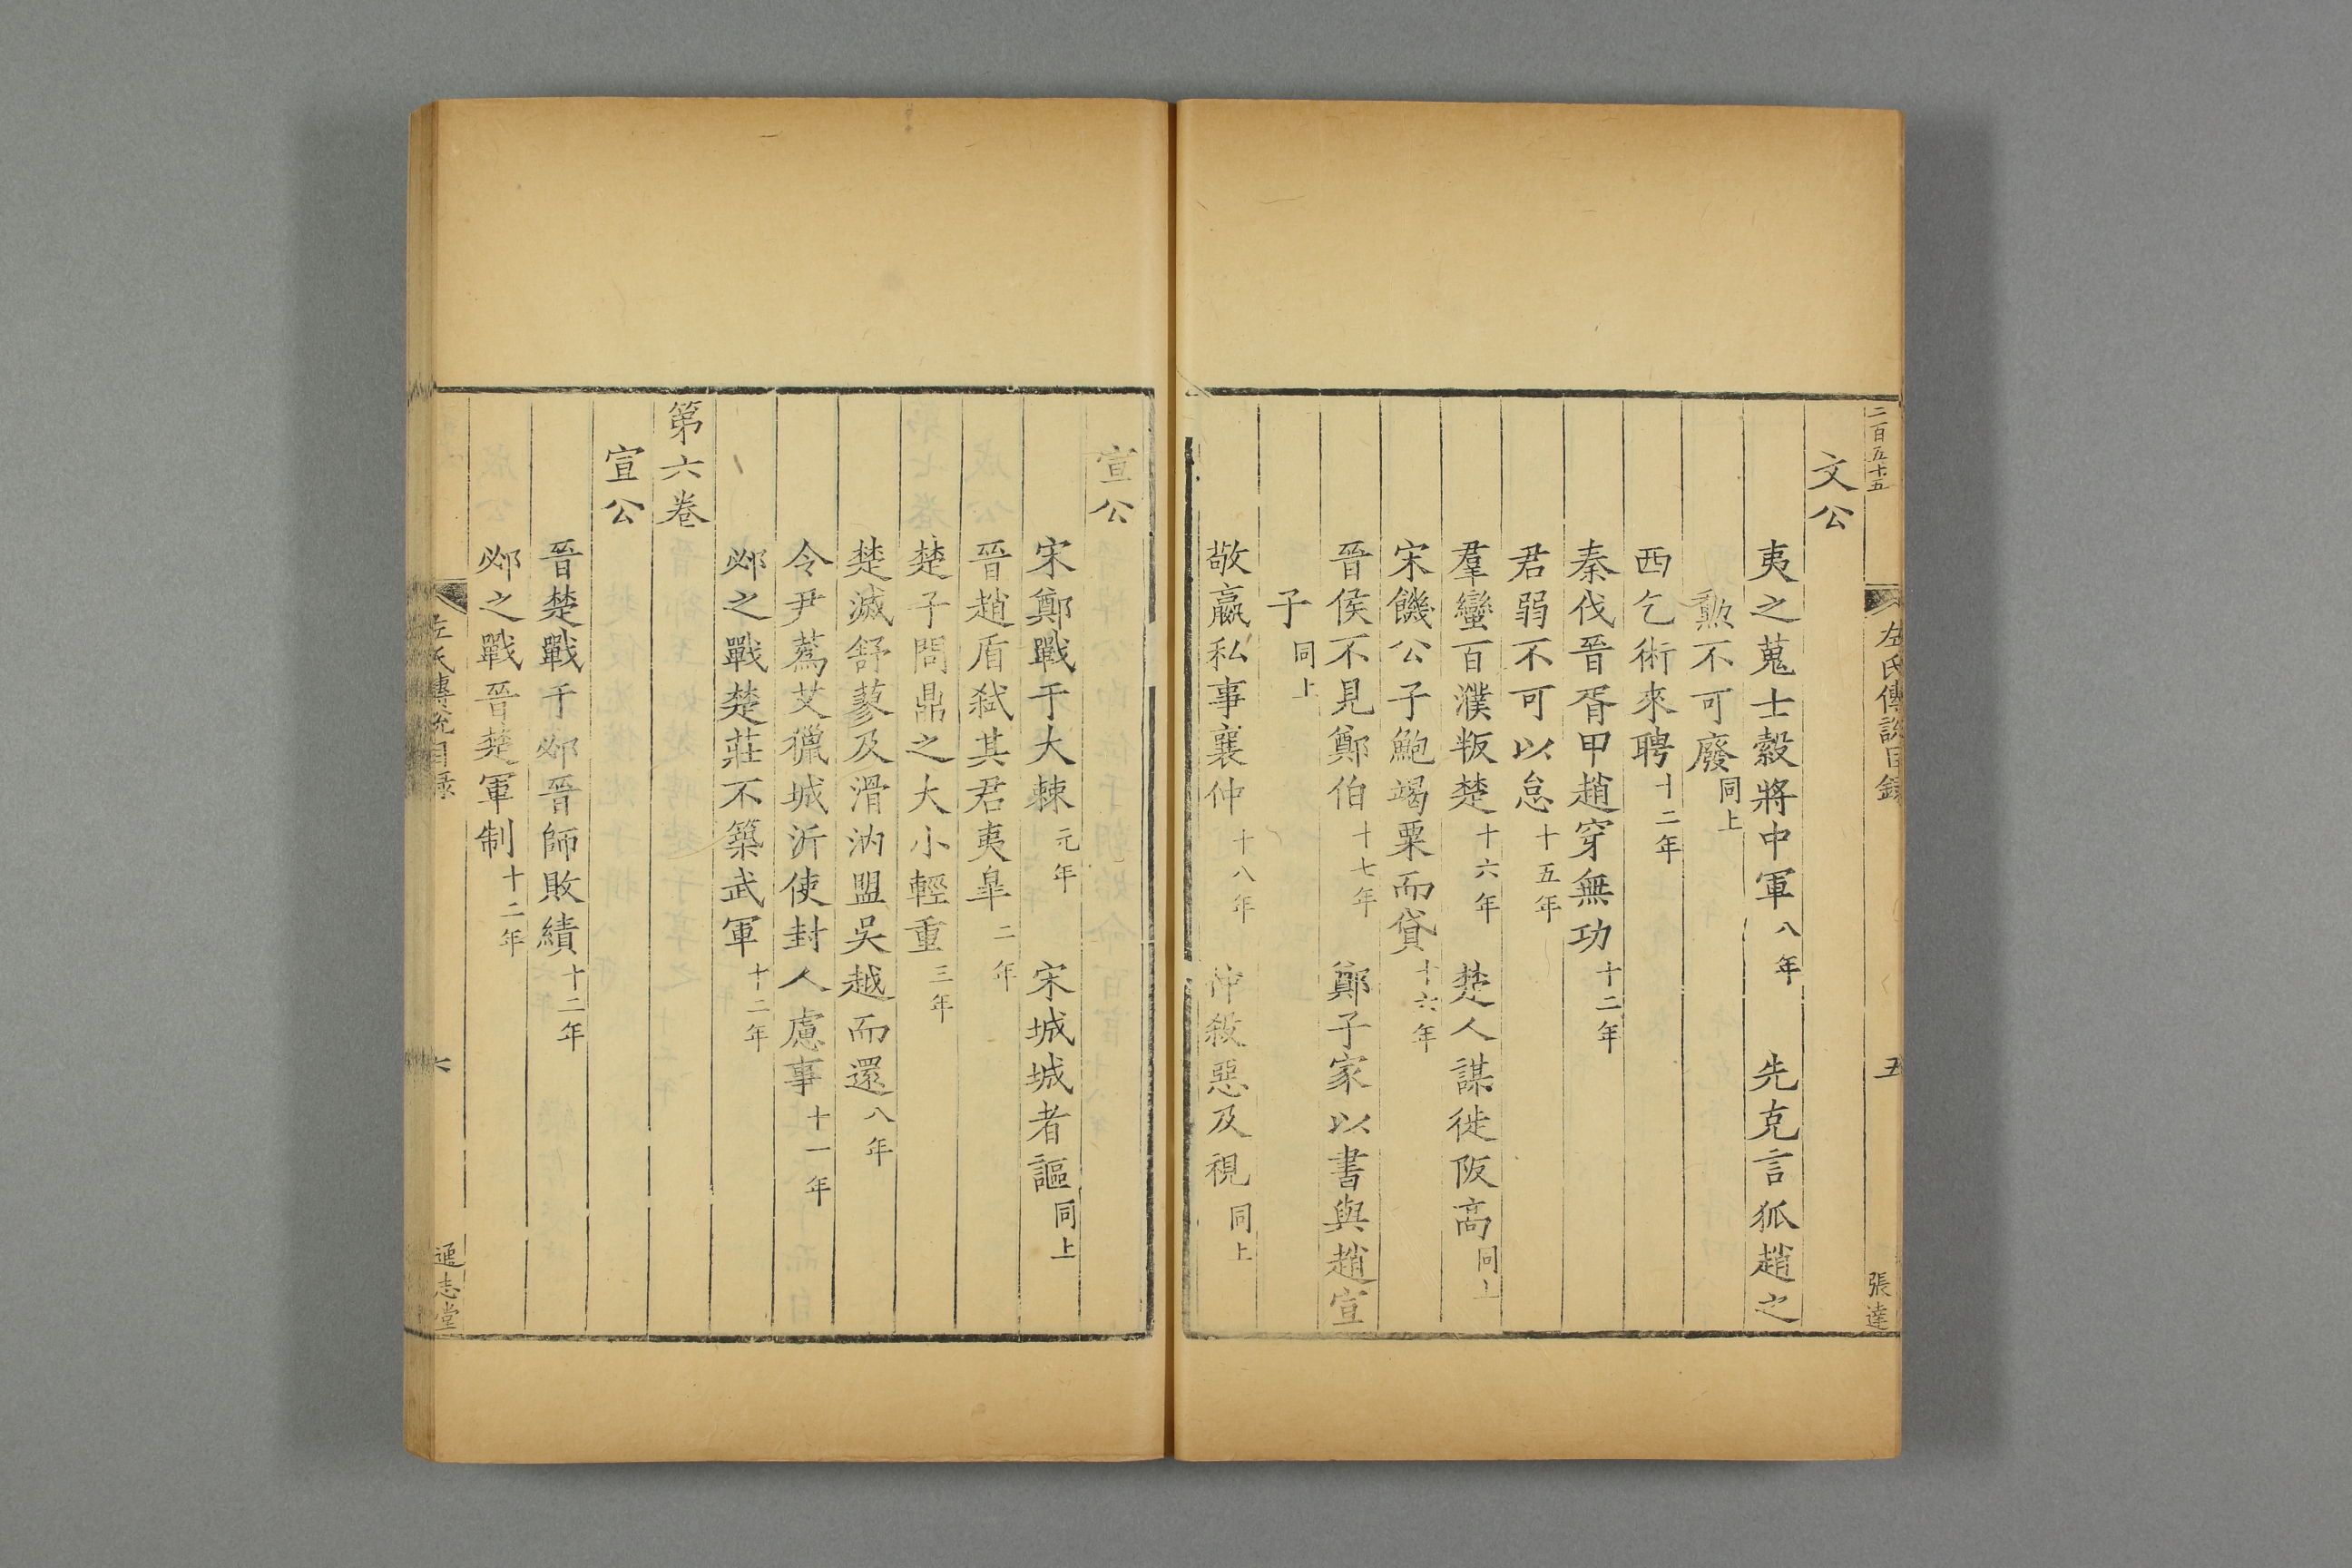 二百五十五
左氏傳說目錄
五
張達
文公
夷之蒐士縠將中軍八年 先克言狐趙之
勲不可廢同上
西乞術來聘十二年
秦伐晉胥甲趙穿無功十二年
君弱不可以怠十五年
羣蠻百濮叛楚十六年 楚人謀徙阪高同上
宋饑公子鮑竭粟而貸十六年
晉侯不見鄭伯十七年 鄭子家以書與趙宣
子同上
敬嬴私事襄仲十八年 仲殺惡及視同上
宣公
宋鄭戰于大棘元年 宋城城者謳同上
晉趙盾弑其君夷皐二年
楚子問鼎之大小輕重三年
楚滅舒蓼及滑汭盟吳越而還八年
令尹蔿艾獵城沂使封人慮事十一年
邲之戰楚莊不築武軍十二年
第六卷
宣公
晉楚戰于邲晉師敗績十二年
邲之戰晉楚軍制十二年
左氏傳說目錄
六
通志堂